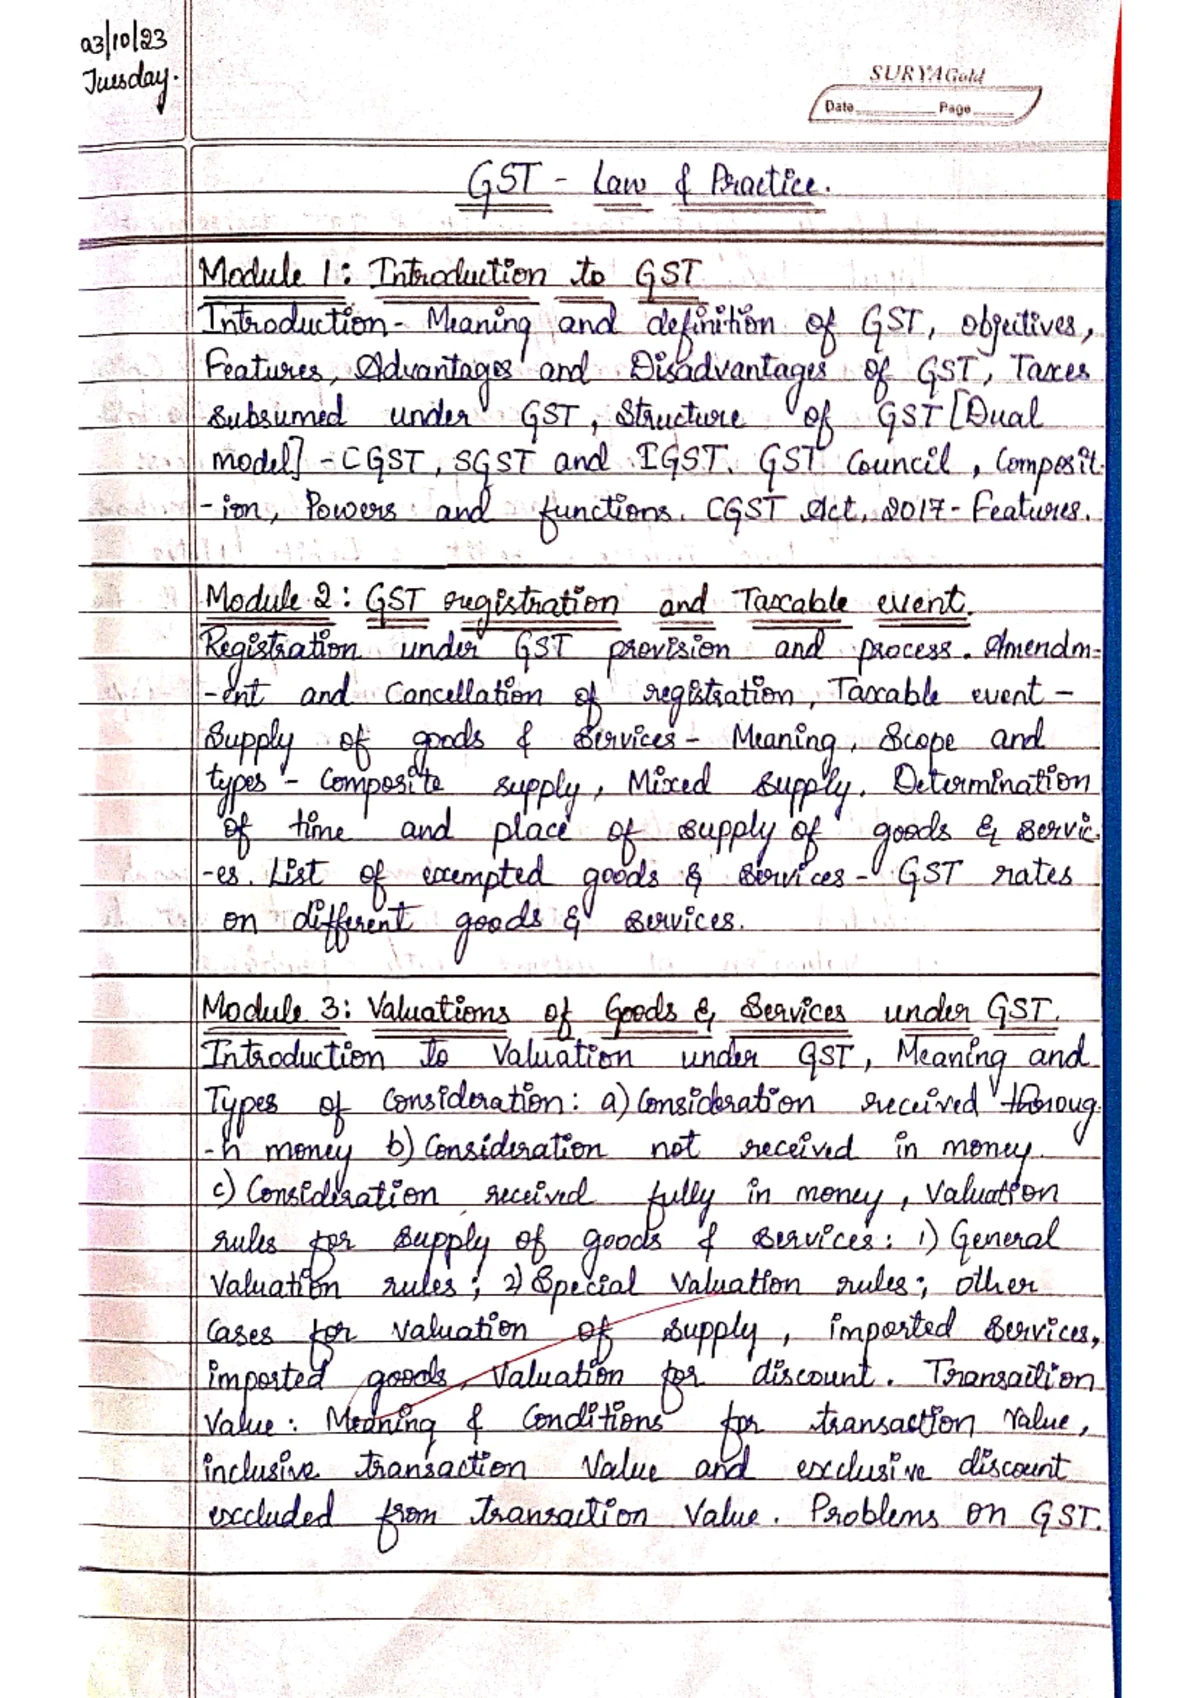 03/10/23
Tuesday.
SURYAGold
Date Page
GST - Law & Practice.
Module 1: Introduction to GST
Introduction- Meaning and definition of GST, objectives,
Features, Advantages and Disadvantages of GST, Taxes
subsumed under GST, Structure of GST [Dual
model] - CGST, SGST and IGST. GST Council, Composit-
-ion, Powers and functions. CGST Act, 2017- Features.
Module 2: GST registration and Taxable event.
Registration under GST provision and process. Amendm-
-ent and Cancellation of registration, Taxable event -
Supply of goods & Services - Meaning, Scope and
types - Composite supply, Mixed supply. Determination
of time and place of supply of goods & servic-
-es. List of exempted goods & services - GST rates
on different goods & services.
Module 3: Valuations of Goods & Services under GST.
Introduction to Valuation under GST, Meaning and
Types of Consideration: a) Consideration received throug-
-h money b) Consideration not received in money
c) Consideration received fully in money, Valuation
rules for supply of goods & services: 1) General
Valuation rules; 2) Special Valuation rules; other
Cases for valuation of supply, imported services,
imported goods, Valuation for discount. Transaction
Value: Meaning & Conditions for transaction value,
inclusive transaction Value and exclusive discount
excluded from transaction Value. Problems on GST.